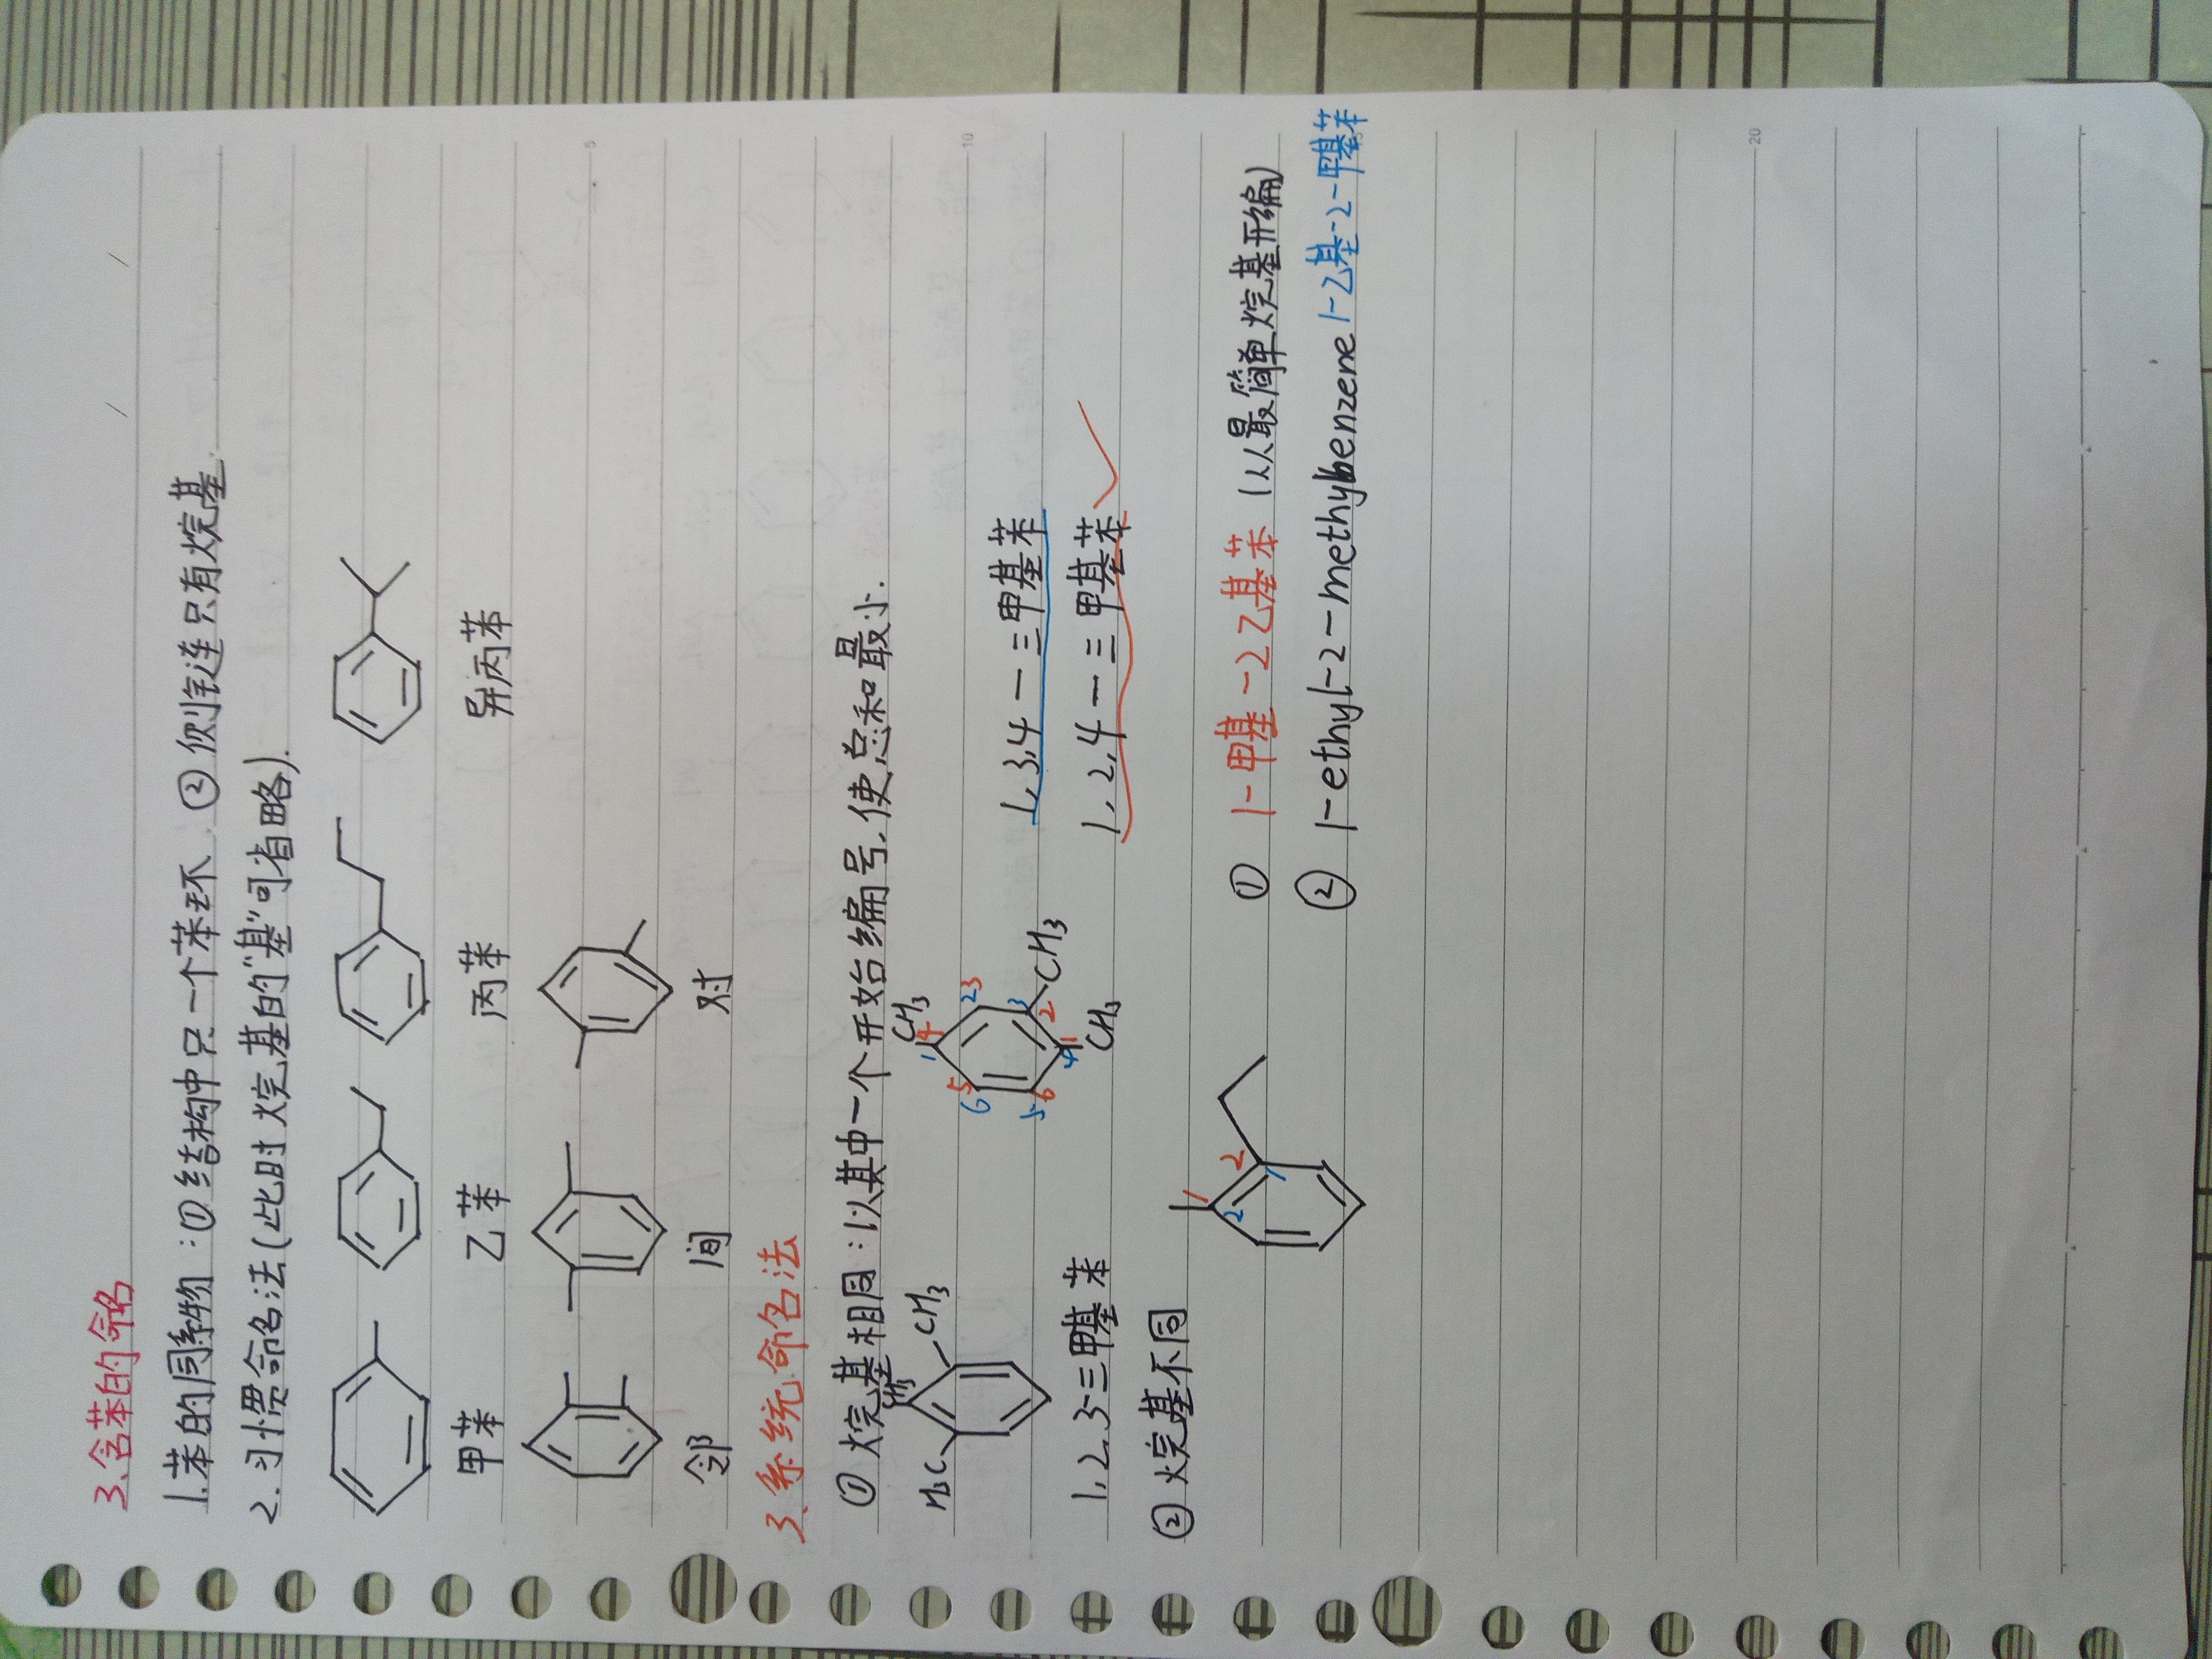 3.含苯的命名
1.苯的同系物:①结构中只一个苯环.②侧链连只有烷基.
2.习惯命名法(此时烷基的"基"可省略).
甲苯 乙苯 丙苯 异丙苯
邻 间 对
3.系统命名法
①烷基相同:以其中一个开始编号,使总和最小.
H3C CH3 CH3 CH3 CH3 CH3
1 2 3 4 5 6
1 2 3 4 5 6
1,2,3-三甲基苯
1,3,4-三甲基苯
1,2,4-三甲基苯 ✓
②烷基不同
1 2
1 2
① 1-甲基-2乙基苯 (从最简单烷基开编)
② 1-ethyl-2-methylbenzene 1-乙基-2-甲基苯
5
10
20